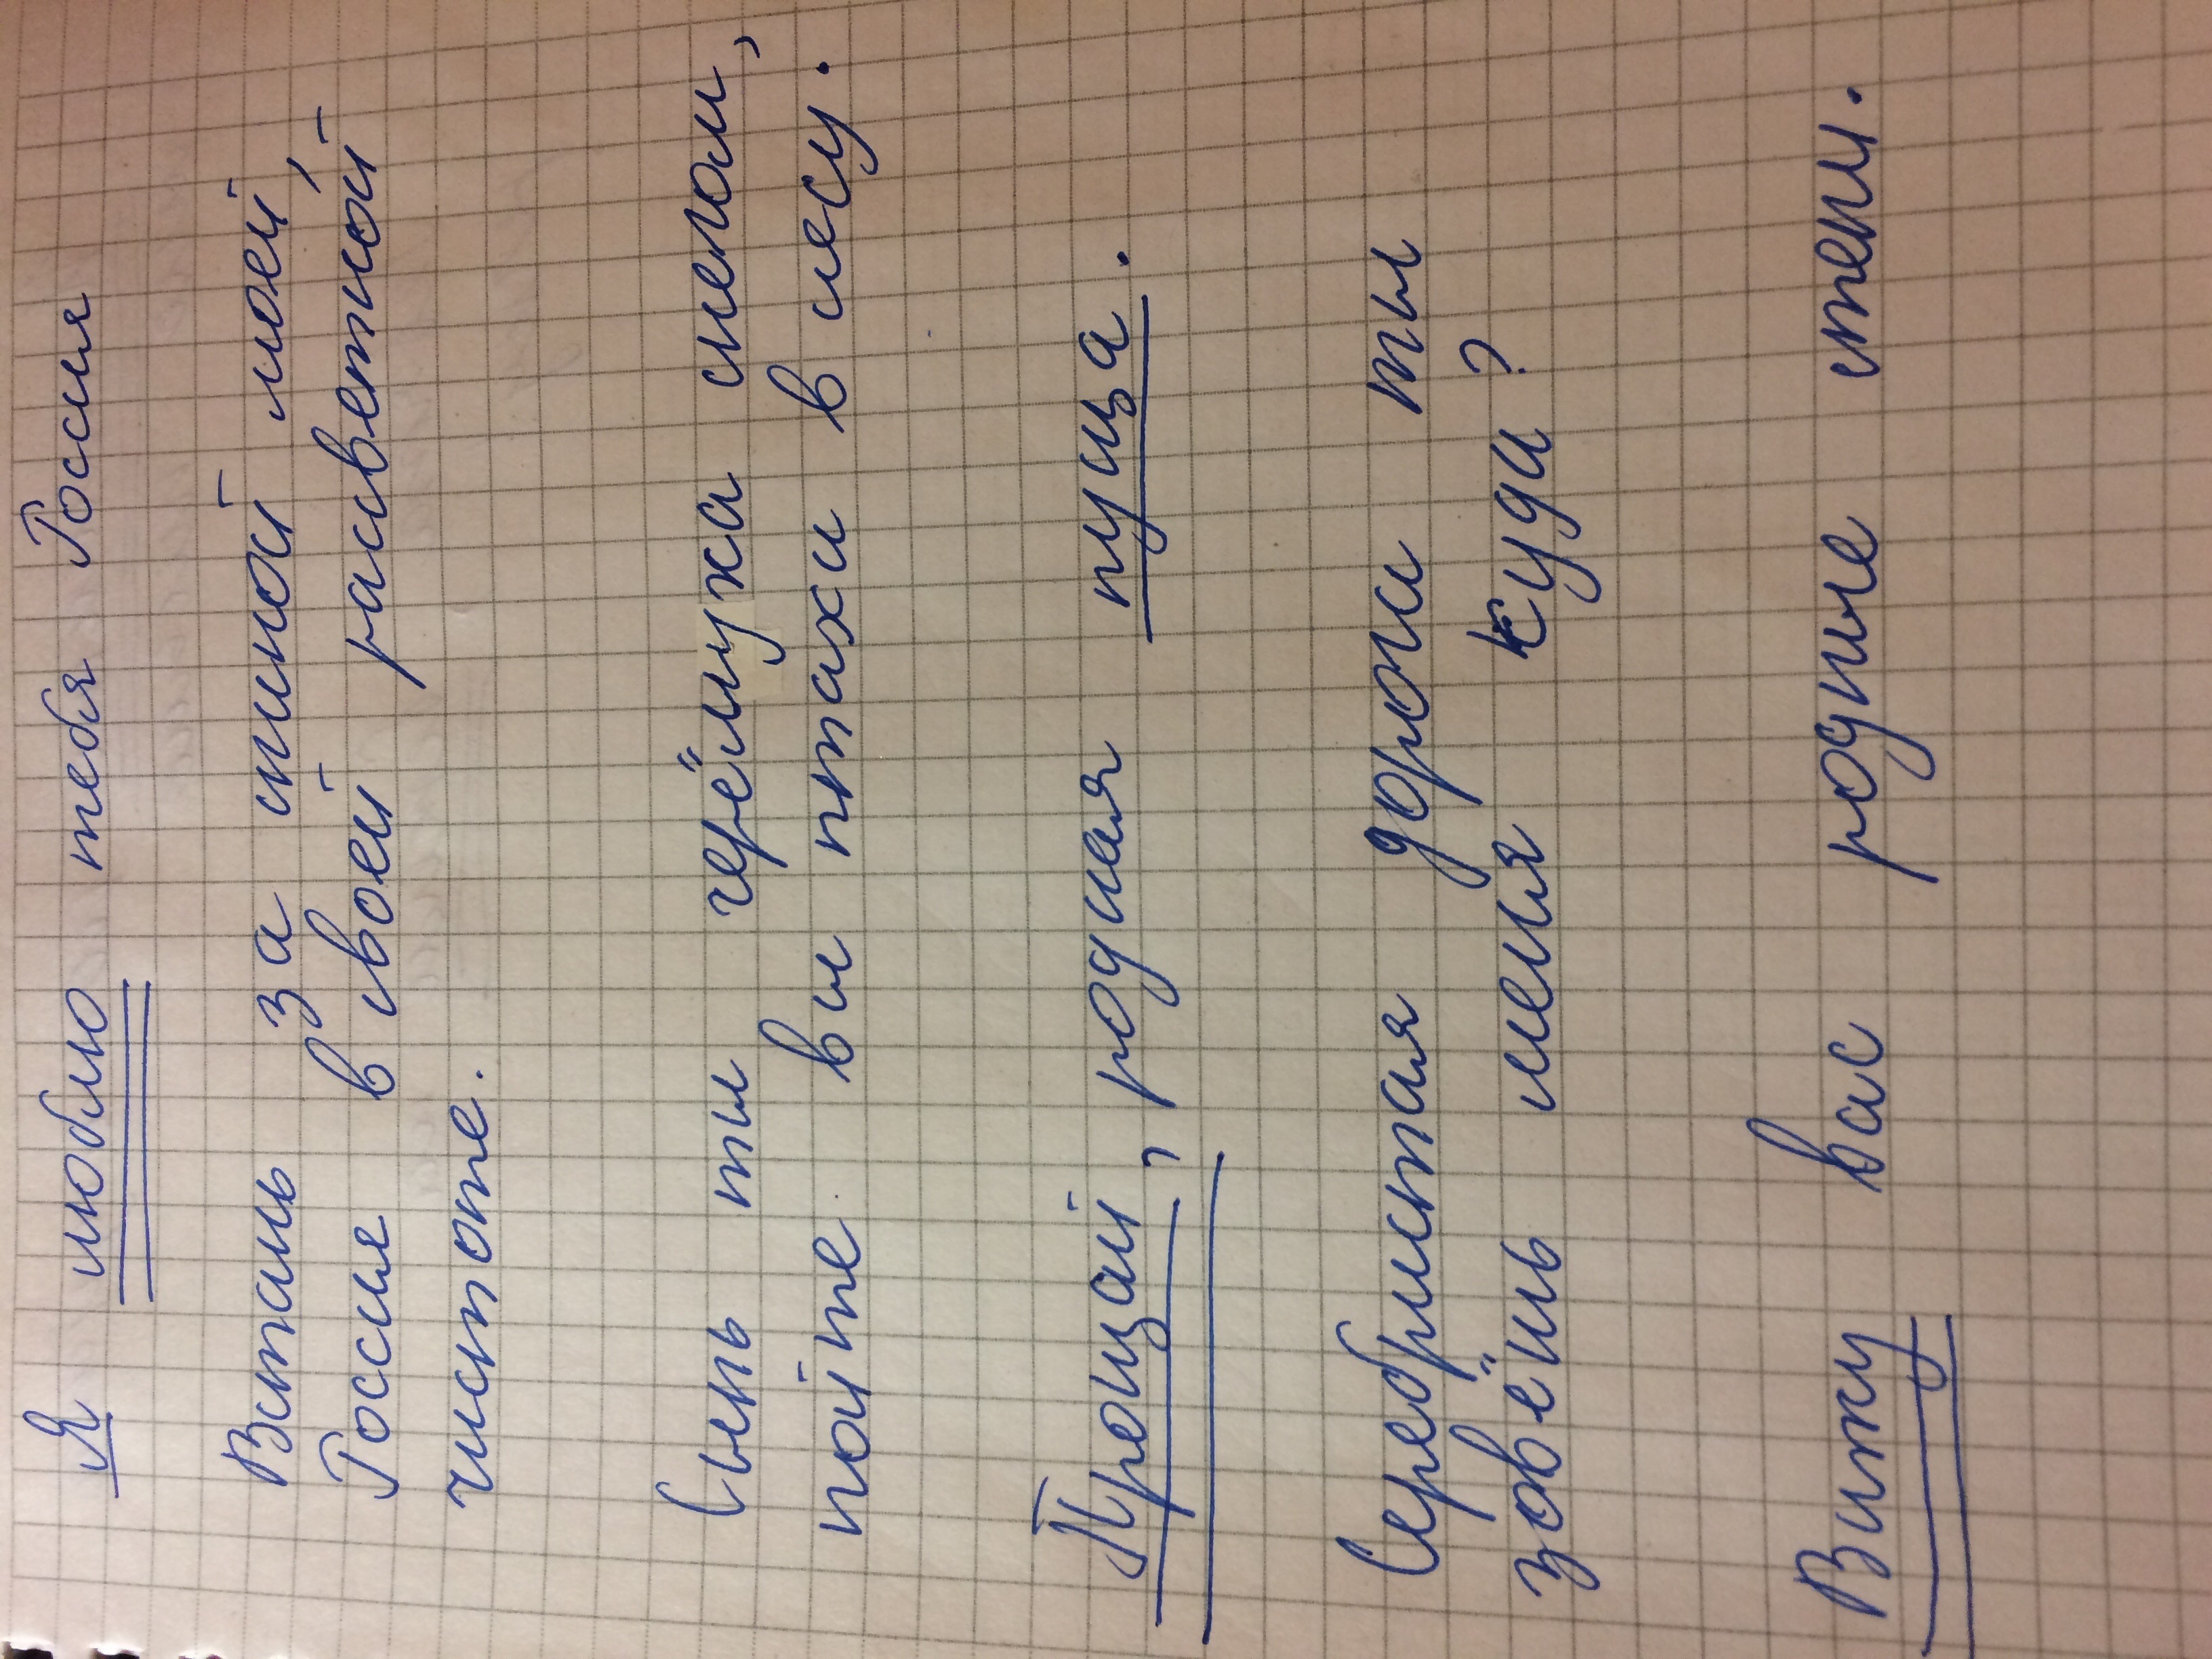 Я люблю тебя Россия
Встань за спиной моей,
Россия в своей расветной
чистоте.
Сыпь ты черёмуха снегом,
пойте вы птахи в лесу.
Прощай, родная пуща.
Серебристая дорога ты
зовёшь меня куда?
Вижу вас родные степи.